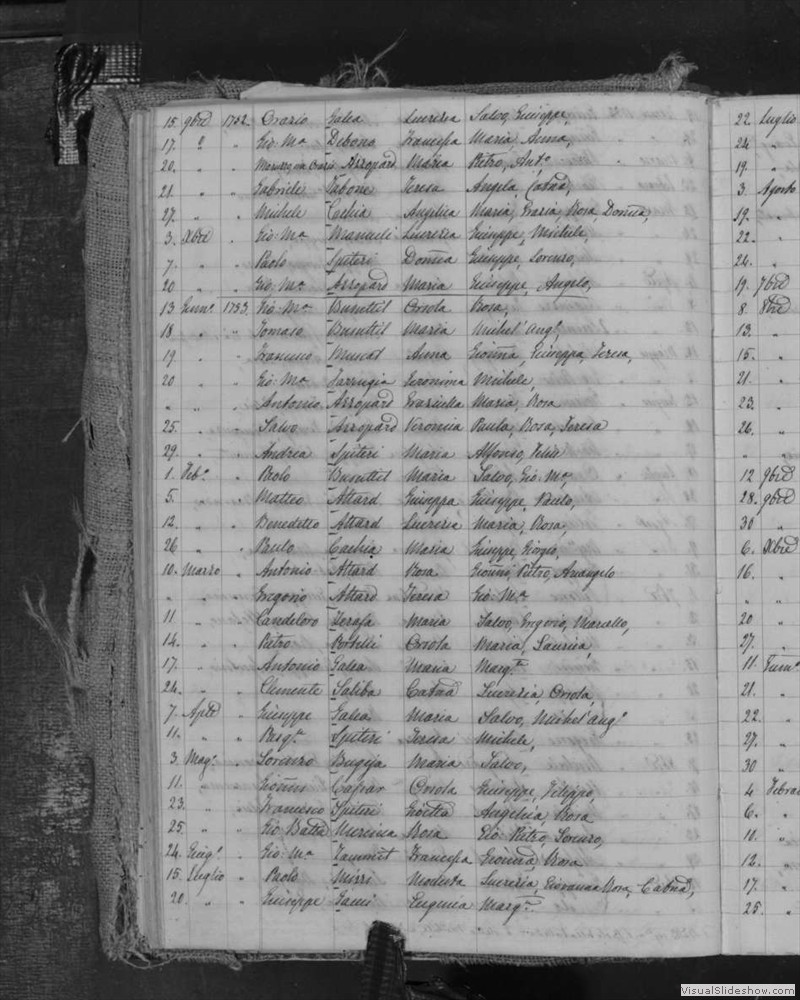 15. 9bre 1752. Orazio Galea Lucrezia Salvo, Giuseppe,
17. " " Gio: Ma Debona Francesca Maria, Anna,
20. " " Arropard Maria Pietro, Anto
21. " " Gabriele Tabone Teresa Angela, Catna,
27. " " Michele Cachia Angelica Maria, Grazia, Rosa, Domca,
3. Xbre " Gio: Ma Manueli Lucrezia Giuseppe, Michele,
7. " " Paolo Spiteri Domca Giuseppe, Lorenzo,
20 " " Gio: Ma Arropard Maria Giuseppe, Angelo,
13 Genno 1753. Gio: Ma Busuttil Orsola Rosa,
18 " " Tomaso Busuttil Maria Michel'Ango
19 " " Francesco Muscat Anna Gionna, Giuseppa, Teresa,
20 " " Gio: Ma Farrugia Geronima Michele,
" " " Antonio Arropard Graziella Maria, Rosa
25. " " Salvo Arropard Veronica Paula, Rosa, Teresa
29. " " Andrea Spiteri Maria Alfonso, Felice
1. Febo " Paolo Busuttil Maria Salvo, Gio: Ma,
5. " " Matteo Attard Giuseppa Giuseppe, Paolo,
12. " " Benedetto Attard Lucrezia Maria, Rosa,
26. " " Paolo Cachia Maria Giuseppe, Giorgio,
10. Marzo " Antonio Attard Rosa Gionni, Pietro, Arcangelo
" " " Gregorio Attard Teresa Gio: Ma
11 " " Candeloro Maria Salvo, Gregorio, Marcello,
14. " " Pietro Portelli Orsola Maria, Laurica,
17. " " Antonio Galea Maria Margta
24. " " Clemente Saliba Catna Lucrezia, Orsola,
7. Aple " Giuseppe Galea Maria Salvo, Michel'Ango
11. " " Pasqe Spiteri Teresa Michele,
3. Mago " Lorenzo Bugeja Maria Salvo,
11. " " Gionni Caspar Orsola Giuseppe, Filippo,
23. " " Francesco Spiteri Gioella Angelica, Rosa
25. " " Gio Batta Mercieca Rosa Gio: Pietro, Lorenzo,
24. Giugo " Gio: Ma Zammit Francesca Gionna, Rosa
15. Luglio " Paolo Mizzi Modesta Lucrezia, Giovanna Rosa, Catna,
20. " " Giuseppe Gauci Eugenia Margta
22. Luglio
24 "
19. "
3. Agosto
19. "
22. "
24. "
19. 7bre
8. 8bre
13. "
15. "
21. "
23. "
26. "
" "
12 9bre
28. 9bre
30 "
6. Xbre
16. "
" "
20 "
27. "
11. Genno
21. "
22. "
27. "
30 "
4 Febra
6. "
10. "
12. "
17. "
25. "
VisualSlideshow.com